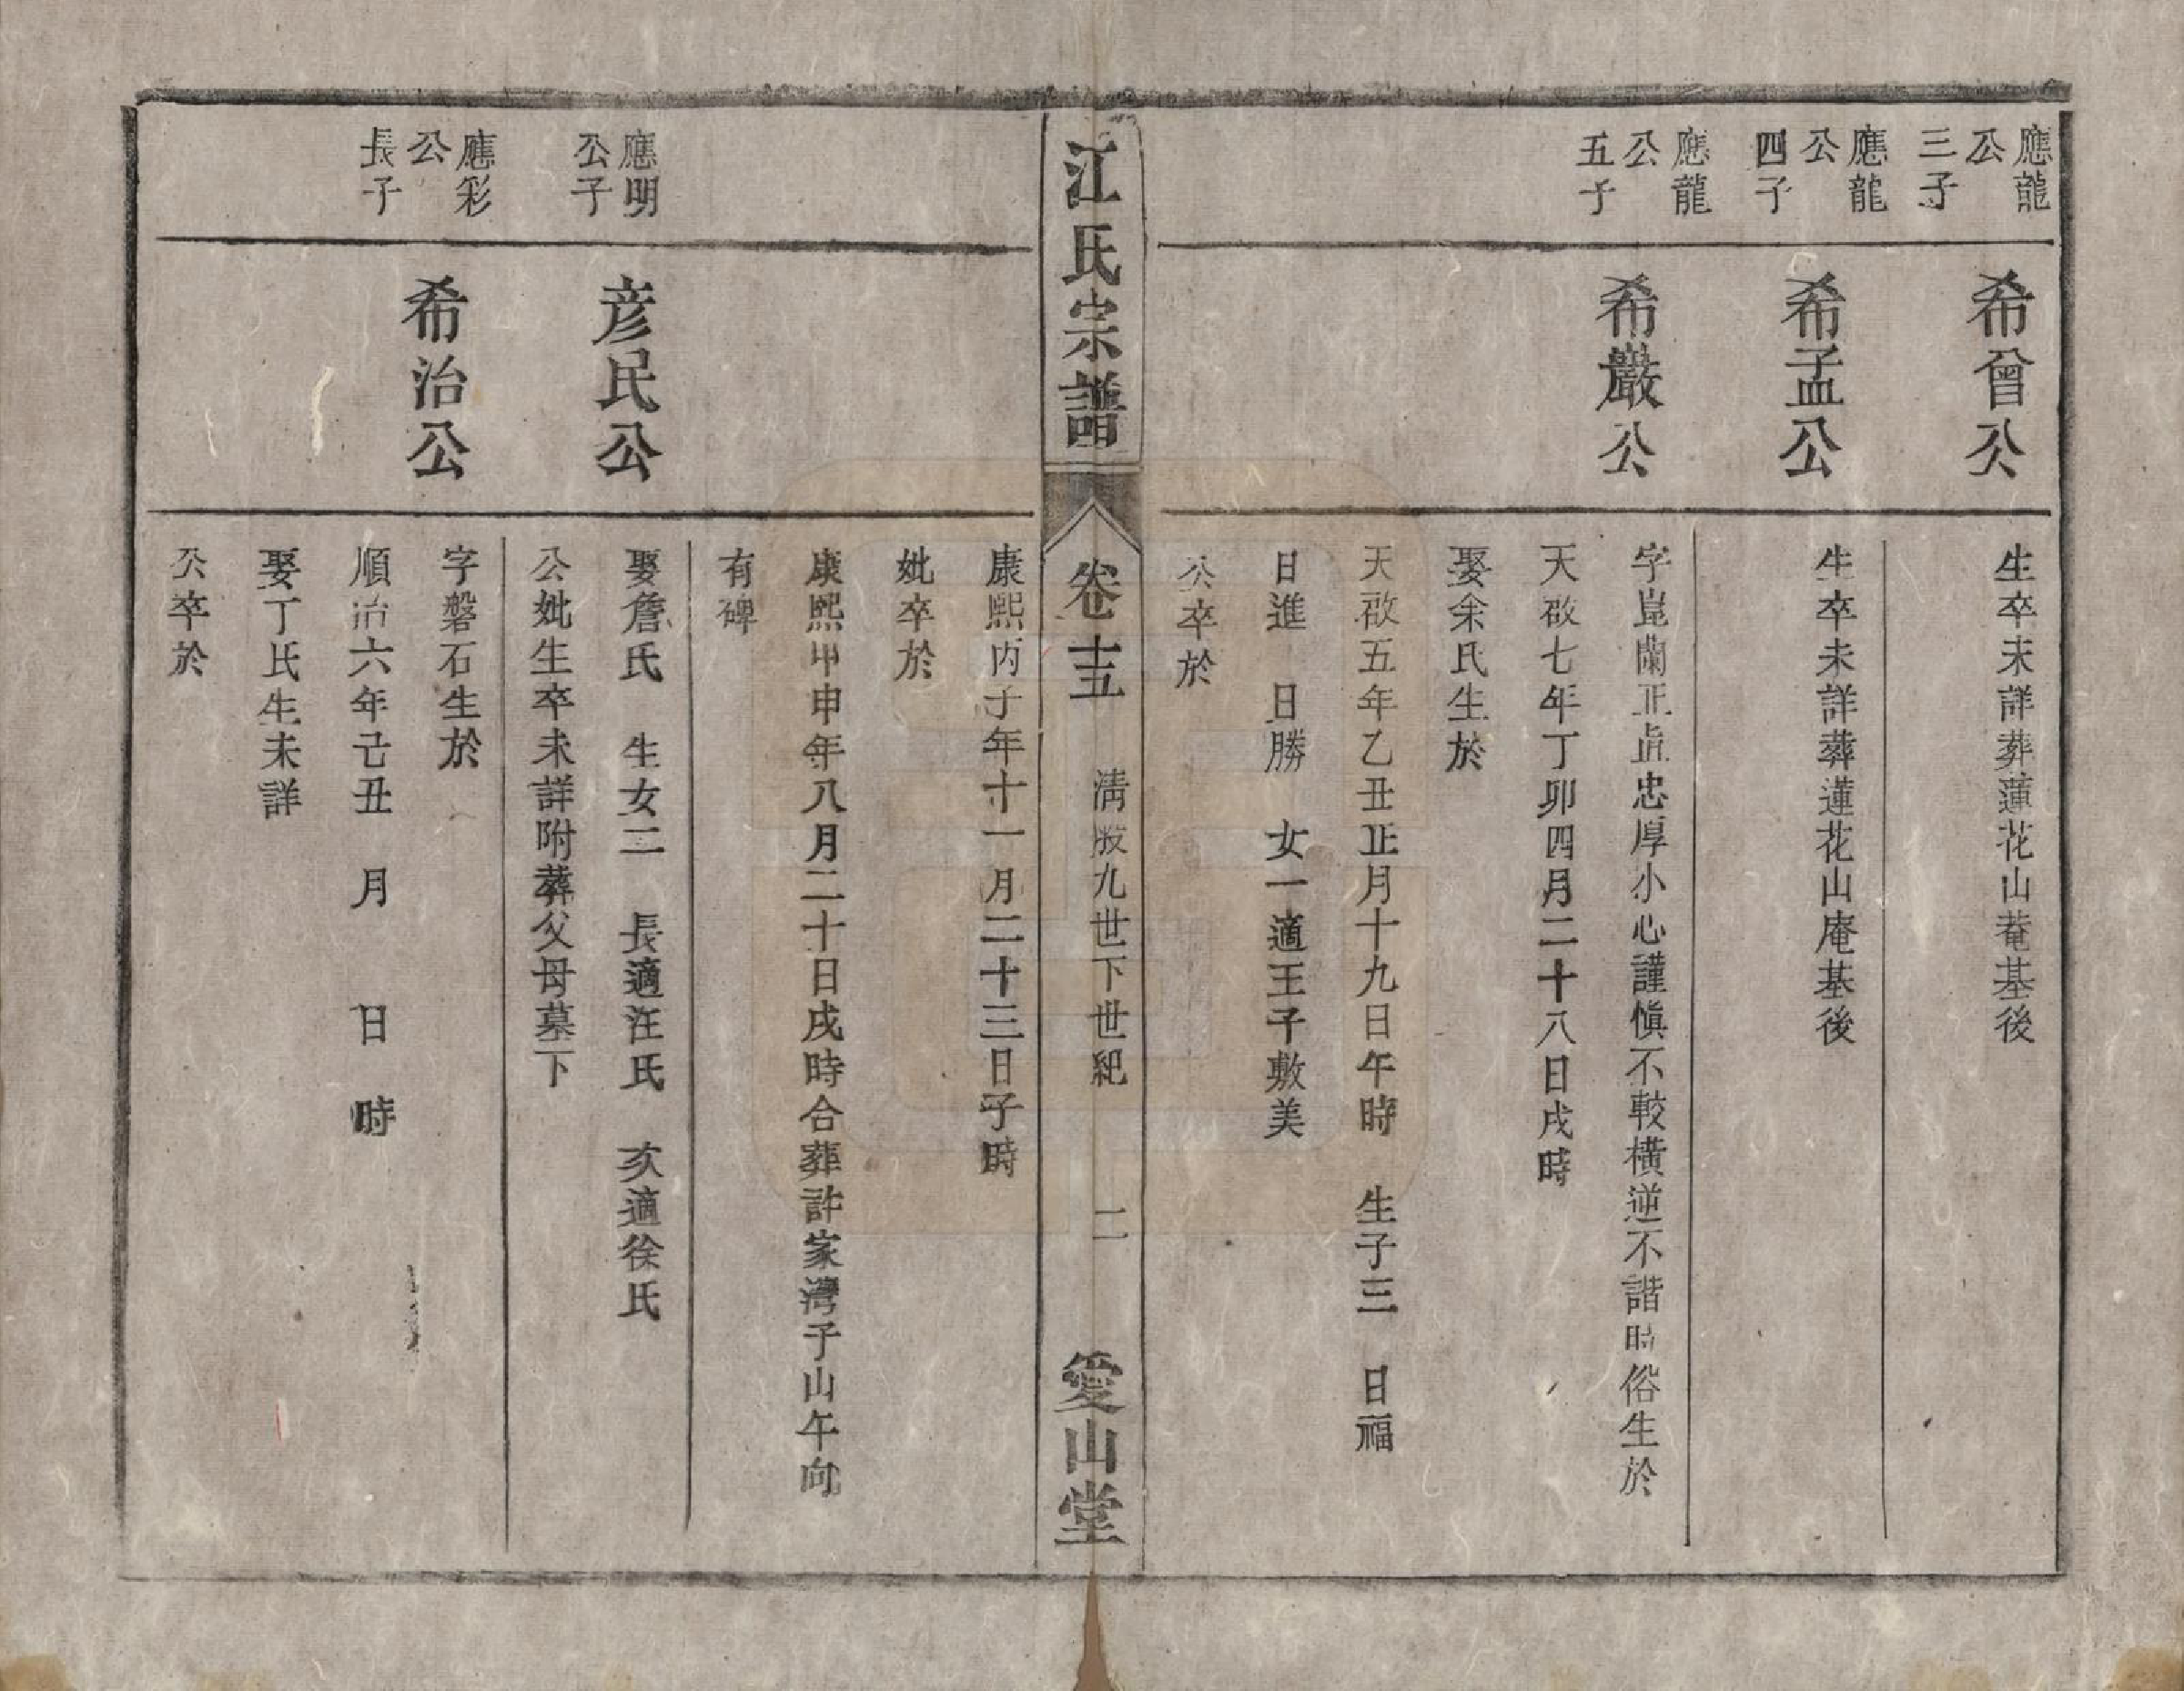 應龍
公
三子
希曾公
生卒未詳葬蓮花山菴基後
應龍
公
四子
希孟公
生卒未詳葬蓮花山庵基後
應龍
公
五子
希巖公
字崑蘭正直忠厚小心謹慎不較橫逆不諧時俗生於
天啟七年丁卯四月二十八日戌時
娶余氏生於
天啟五年乙丑正月十九日午時 生子三 日福
日進 日勝 女一適王子敷美
公卒於
江氏宗譜 卷十五 清股九世下世紀 二 愛山堂
康熙丙子年十一月二十三日子時
妣卒於
康熙甲申年八月二十日戌時合葬許家灣子山午向
有碑
應明
公子
彦民公
娶詹氏 生女二 長適汪氏 次適徐氏
公妣生卒未詳附葬父母墓下
應彩
公
長子
希治公
字磐石生於
順治六年己丑 月 日 時
娶丁氏生未詳
公卒於